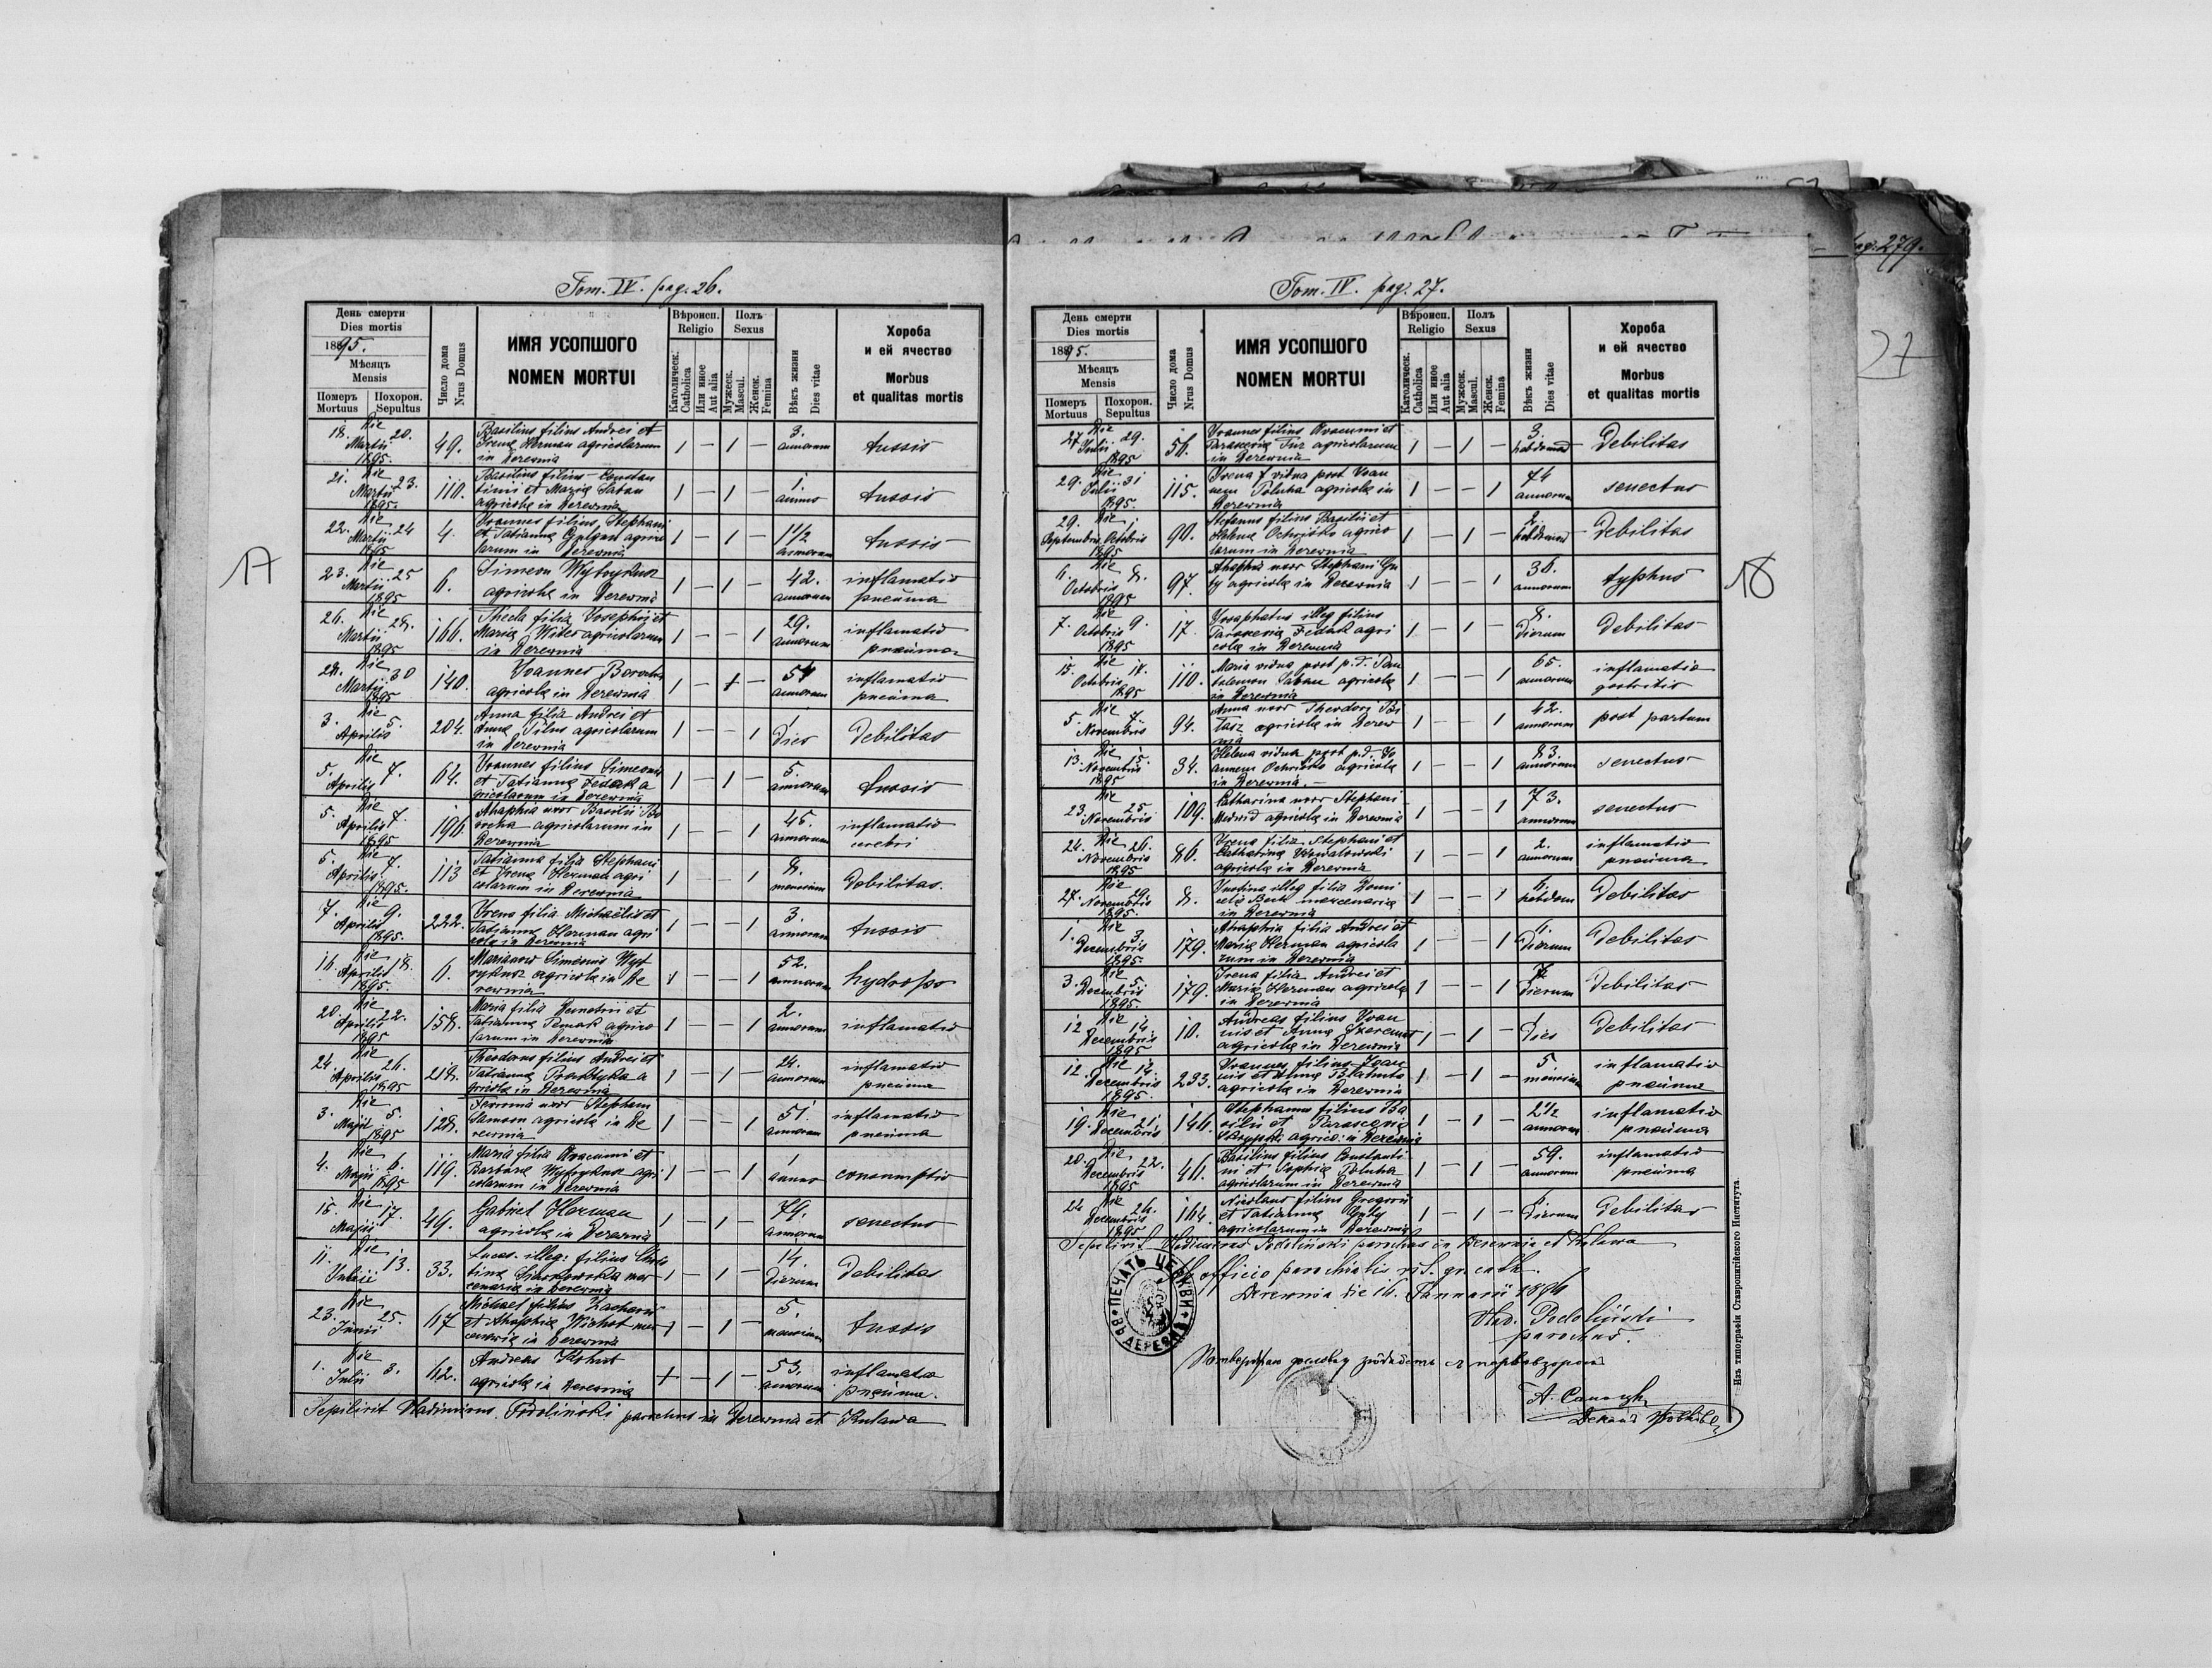 Tom. IV. pag. 26.
День смерти
Dies mortis
1895.
Мѣсяць
Mensis
Померъ Mortuus
Похорон. Sepultus
Число дома
Nrus Domus
ИМЯ УСОПШОГО
NOMEN MORTUI
Вѣроисп.
Religio
Католическ.
Catholica
Или иное
Aut alia
Полъ
Sexus
Мужеск.
Mascul.
Женск.
Femina
Вѣкъ жизни
Dies vitae
Хороба
и ей ячество
Morbus
et qualitas mortis
18. Die 20. Martii 1895. 49. Basilius filius Andrei et
Irenę Herman agricolarum
in Derewnia 1 — 1 — 3. annorum tussis
21. Die 23. Martii 1895. 110. Basilius filius Constan
tini et Marię Saban
agricolę in Derewnia 1 — 1 — 1. annus tussis
22. Die 24 Martii 1895 4. Ioannes filius Stephani
et Tatiannę agrico
larum in Derewnia 1 — 1 — 1 1/2 annorum tussis
23. Die 25 Martii 1895 6. Simeon Wytrykusz
agricola in Derewnia 1 — 1 — 42. annorum inflamatio
pneuma
26. Die 28. Martii 1895 166. Thecla filia Iosephi et
Marię Witer agricolarum
in Derewnia 1 — — 1 29. annorum inflamatio
pneuma
28. Die 30 Martii 1895 140. Ioannes
agricola in Derewnia 1 — 1 — 54 annorum inflamatio
pneuma
3. Die 5. Aprilis 204. Anna filia Andrei et
Annę Pilus agricolarum
in Derewnia 1 — — 1 1 dies Debilitas
5. Die 7. Aprilis 64. Ioannes filius Simeonis
et Tatiannę Fedak a
gricolarum in Derewnia 1 — 1 — 5. annorum tussis
5. Die 7. Aprilis 1895 196. Ahaphia uxor Basilii Bo
rocha agricolarum in
Derewnia 1 — — 1 45. annorum inflamatio
cerebri
5. Die 7. Aprilis 1895. 113 Tatianna filia Stephani
et Irenę Herman agri
colarum in Derewnia 1 — — 1 8. mensium Debilitas.
7. Die 9. Aprilis 1895. 222. Irena filia Michaëlis et
Tatiannę Herman agri
colę in Derewnia 1 — — 1 3. annorum tussis
16. Die 18. Aprilis 1895. 6. Maria uxor Simeonis Wyt
rykusz agricolę in De
rewnia 1 — — 1 52. annorum hydrops
20. Die 22. Aprilis 1895 158. Maria filia Demetrii et
Tatiannę agrico
larum in Derewnia 1 — — 1 2. annorum inflamatio
24. Die 26. Aprilis 1895 218. Theodorus filius Andrei et
Tatiannę a
gricolę in Derewnia 1 — 1 — 24. annorum inflamatio
pneuma
3. Die 5. Maji 1895 128. uxor Stephani
agricolę in De
rewnia 1 — — 1 51. annorum inflamatio
pneuma
4. Die 6. Maji 1895 119. Maria filia et
Barbarę Wytrykusz agri
colarum in Derewnia 1 — — 1 1 annus consumptio
15. Die 17. Maji 49. Gabriel Herman
agricola in Derewnia 1 — 1 — 79. annorum senectus
11. Die 13. Julii 33. Lucas illeg. filius
mer
cenarię in Derewnia 1 — 1 — 14. dierum Debilitas
23. Die 25. Junii 117 Michael filius Zacharię
et Ahaphię Wichot mer
cenarię in Derewnia 1 — 1 — 5. mensium tussis
1. Die 3. Julii 62. Andreas Kohut
agricola in Derewnia 1 — 1 — 53. annorum inflamatio
pneuma.
Sepilivit Vladimirus Podoliński parochus in Derewnia et Kulawa
17
Tom. IV. pag. 27.
День смерти
Dies mortis
1895.
Мѣсяць
Mensis
Померъ Mortuus
Похорон. Sepultus
Число дома
Nrus Domus
ИМЯ УСОПШОГО
NOMEN MORTUI
Вѣроисп.
Religio
Католическ.
Catholica
Или иное
Aut alia
Полъ
Sexus
Мужеск.
Mascul.
Женск.
Femina
Вѣкъ жизни
Dies vitae
Хороба
и ей ячество
Morbus
et qualitas mortis
27 Die 29. Julii 1895 56. Ioannes filius et
Parascevię Tur agricolarum
in Derewnia 1 — 1 — 3. hebdomad Debilitas
29. Die 31 Julii 1895. 115. Irena vidua post Ioan
nem Poluha agricola in
Derewnia 1 — — 1 74 annorum senectus
29. Septembris Die 1 Octobris 1895 90. Stefanus filius Basilii et
Helenę Ochrisko agrico
larum in Derewnia 1 — 1 — 2. hebdomad Debilitas
6. Die 8. Octobris 1895 97. Ahaphia uxor Stephani
agricolę in Derewnia 1 — — 1 36. annorum typhus
7. Die 9. Octobris 1895 17. Iosaphatus illeg filius
Parascevię Fedak agri
colę in Derewnia 1 — 1 — 8. Dierum Debilitas
15. Die 17. Octobris 1895 110. Maria vidua post p.d. Pan
talemon Saban agricola
in Derewnia 1 — — 1 65. annorum inflamatio
gastritis
5. Die 7. Novembris 94. Anna uxor Theodori
agricolę in Derew
nia 1 — — 1 42. annorum post partum
13. Die 15. Novembris 1895 34. Helena vidua post p.d. Io
annem Ochrisko agricola
in Derewnia. 1 — — 1 83. annorum senectus
23. Die 25. Novembris 109. Catharina uxor Stephani
Medwid agricolę in Derewnia 1 — — 1 73. annorum senectus
24. Die 26. Novembris 1895 86. Irena filia Stephani et
Catharinę
agricolę in Derewnia 1 — — 1 2. annorum inflamatio
pneuma
27. Die 29. Novembris 1895. 8. Justina illeg filia
mercenarię
in Derewnia 1 — — 1 hebdom Debilitas
1. Die 3. Decembris 1895 179. Ahaphia filia Andrei et
Marię Herman agricola
rum in Derewnia 1 — — 1 Dierum Debilitas
3. Die 5. Decembris 1895. 179. Irena filia Andrei et
Marię Herman agricolę
in Derewnia 1 — — 1 Dierum Debilitas
12 Die 14. Decembris 1895 10. Andreas filius Ioan
nis et Annę
agricolę in Derewnia 1 — 1 — 1 Dies Debilitas
12. Die 14. Decembris 1895. 233. Ioannes filius Ioan
nis et Annę
agricolę in Derewnia 1 — 1 — 5 mensium inflamatio
pneuma
19. Die 21. Decembris 146. Stephanus filius Ba
silii et Parascevię
agrico: in Derewnia 1 — 1 — 2 1/2 annorum inflamatio
pneuma
20. Die 22. Decembris 1895 46. Basilius filius Constanti
ni et Sophię Poluha
agricolarum in Derewnia 1 — 1 — 59. annorum inflamatio
pneuma
24 Die 26. Decembris 1895 164. Nicolaus filius Gregorii
et Tatiannę
agricolarum in Derewnia 1 — 1 — Dierum Debilitas
Sepilivit Vladimirus Podoliński parochus in Derewnia et Kulawa
Ab officio parochialis rit. gr. cath.
Derewnia die 16. Januarii 1896
Vlad. Podoliński
parochus.
ПЕЧАТЬ ЦЕРКВИ ВЪ ДЕРЕВНИ
18
Изъ типографіи Ставропигійского Института.
pag. 279.
27